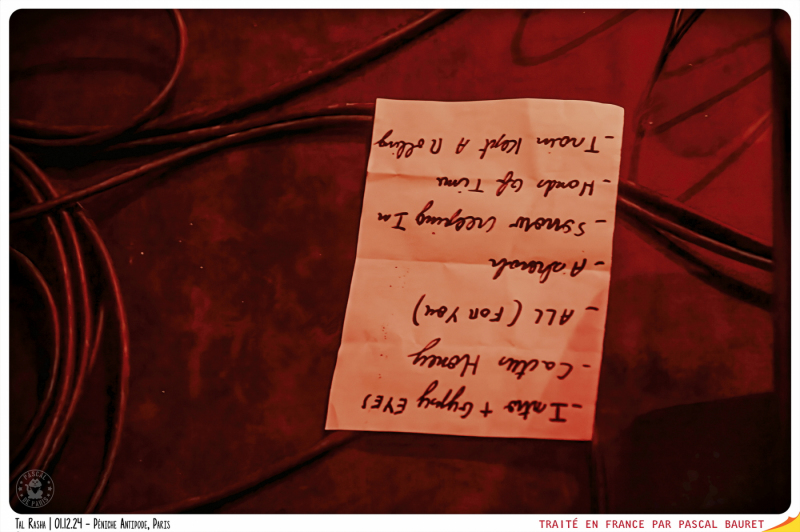 - Intro + Gypsy EYES
- Cactus Honey
- ALL (FOR YOU)
-
- Creeping In
- Hands Of Time
- Train Kept A Rolling
PASCAL
DE PARIS
Tal Rasha | 01.12.24 - Péniche Antipode, Paris
TRAITÉ EN FRANCE PAR PASCAL BAURET